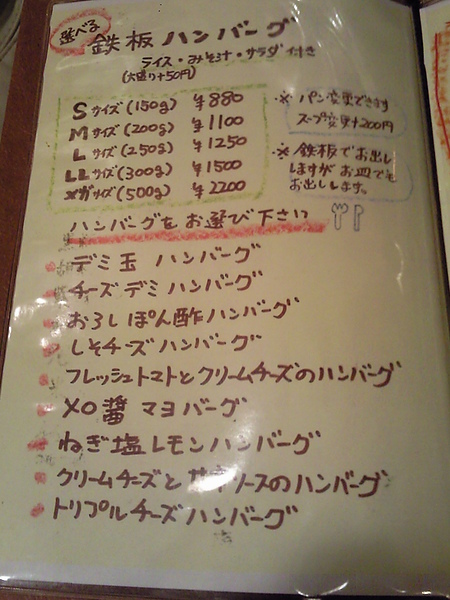 選べる 鉄板ハンバーグ
ライス・みそ汁・サラダ付き
(大盛り+50円)
Sサイズ(150g) ¥880
Mサイズ(200g) ¥1100
Lサイズ(250g) ¥1250
LLサイズ(300g) ¥1500
メガサイズ(500g) ¥2200
※ パン変更できます
スープ変更+200円
※ 鉄板でお出し
しますがお皿でも
お出しします。
ハンバーグをお選び下さい
デミ玉 ハンバーグ
チーズデミハンバーグ
おろしぽん酢ハンバーグ
しそチーズハンバーグ
フレッシュトマトとクリームチーズのハンバーグ
XO醤マヨバーグ
ねぎ塩レモンハンバーグ
クリームチーズと ソースのハンバーグ
トリプルチーズハンバーグ